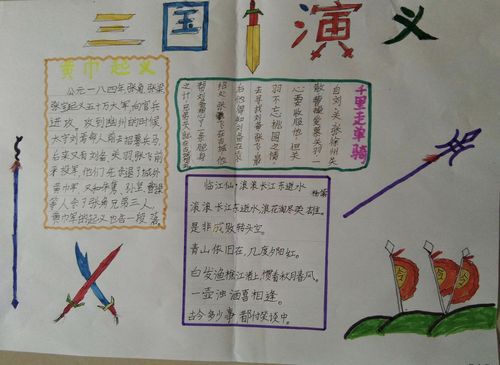 三国演义
黄巾起义
公元一八四年张角、张梁
张宝起义五十万大军向官兵
进攻，攻到幽州的时候
太守刘焉命人前去招募兵马
后来又有刘备、关羽、张飞前
来投军，他们先击退了城外
黄巾军，又和朱儁、孙坚、曹操
等人合了张角兄弟三人。
黄巾军的起义也告一段落。
千里走单骑
自刘、关、张徐州失
散曹操爱慕关羽一
心要收服他，但关
羽不忘桃园之情，
去寻找刘备张飞最
后他得知刘备去
古城他
帮刘备
之计
临江仙·滚滚长江东逝水
杨慎
滚滚长江东逝水，浪花淘尽英雄。
是非成败转头空。
青山依旧在，几度夕阳红。
白发渔樵江渚上，惯看秋月春风。
一壶浊酒喜相逢。
古今多少事，都付笑谈中。